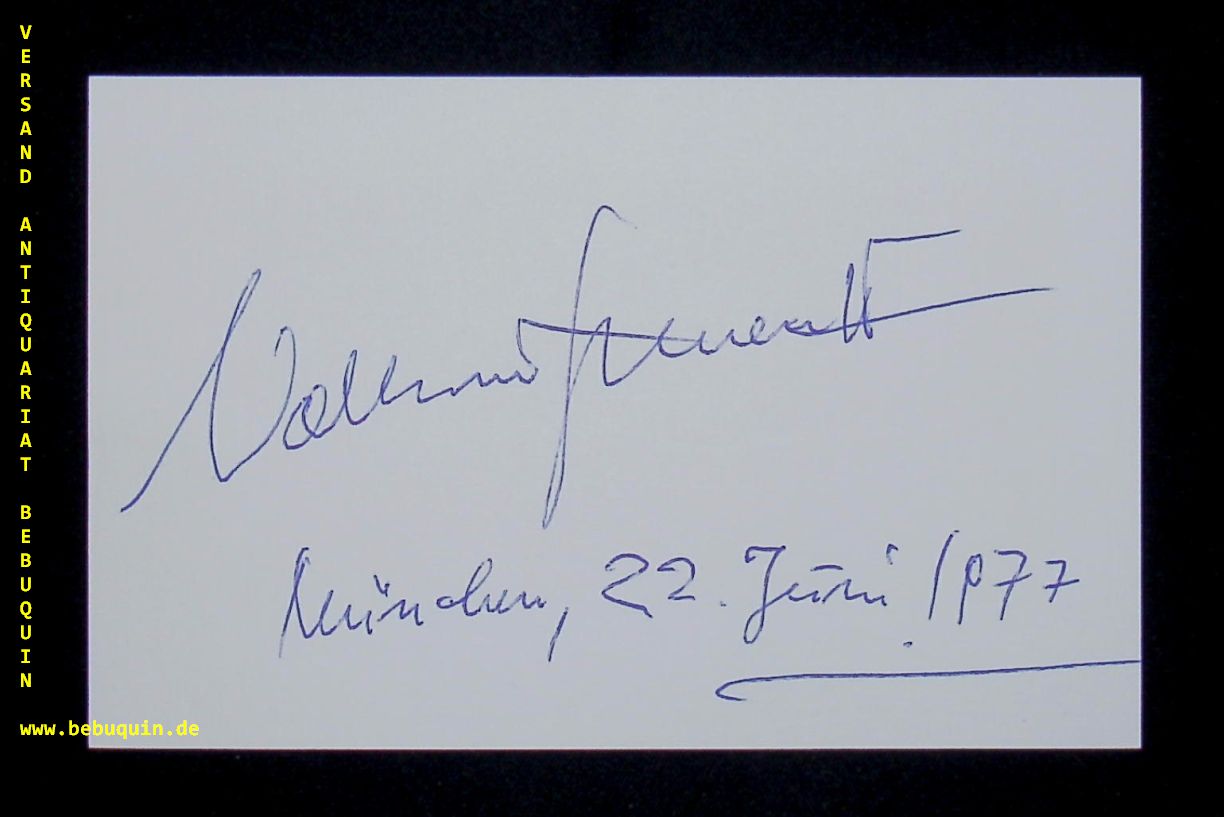 VERSAND ANTIQUARIAT BEBUQUIN
München, 22. Juni 1977
www.bebuquin.de